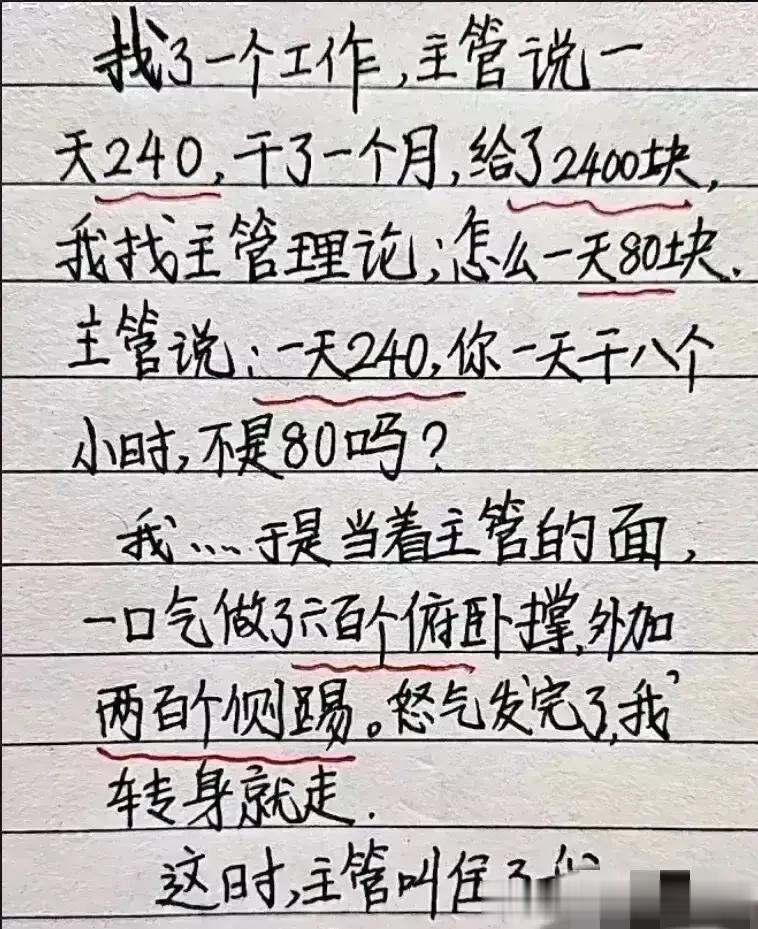 找了一个工作,主管说一
天240,干了一个月,给了2400块,
我找主管理论;怎么一天80块.
主管说:一天240,你一天干八个
小时,不是80吗?
我....于是当着主管的面,
一口气做了六百个俯卧撑,外加
两百个侧踢。怒气发完了,我
转身就走.
这时,主管叫住了